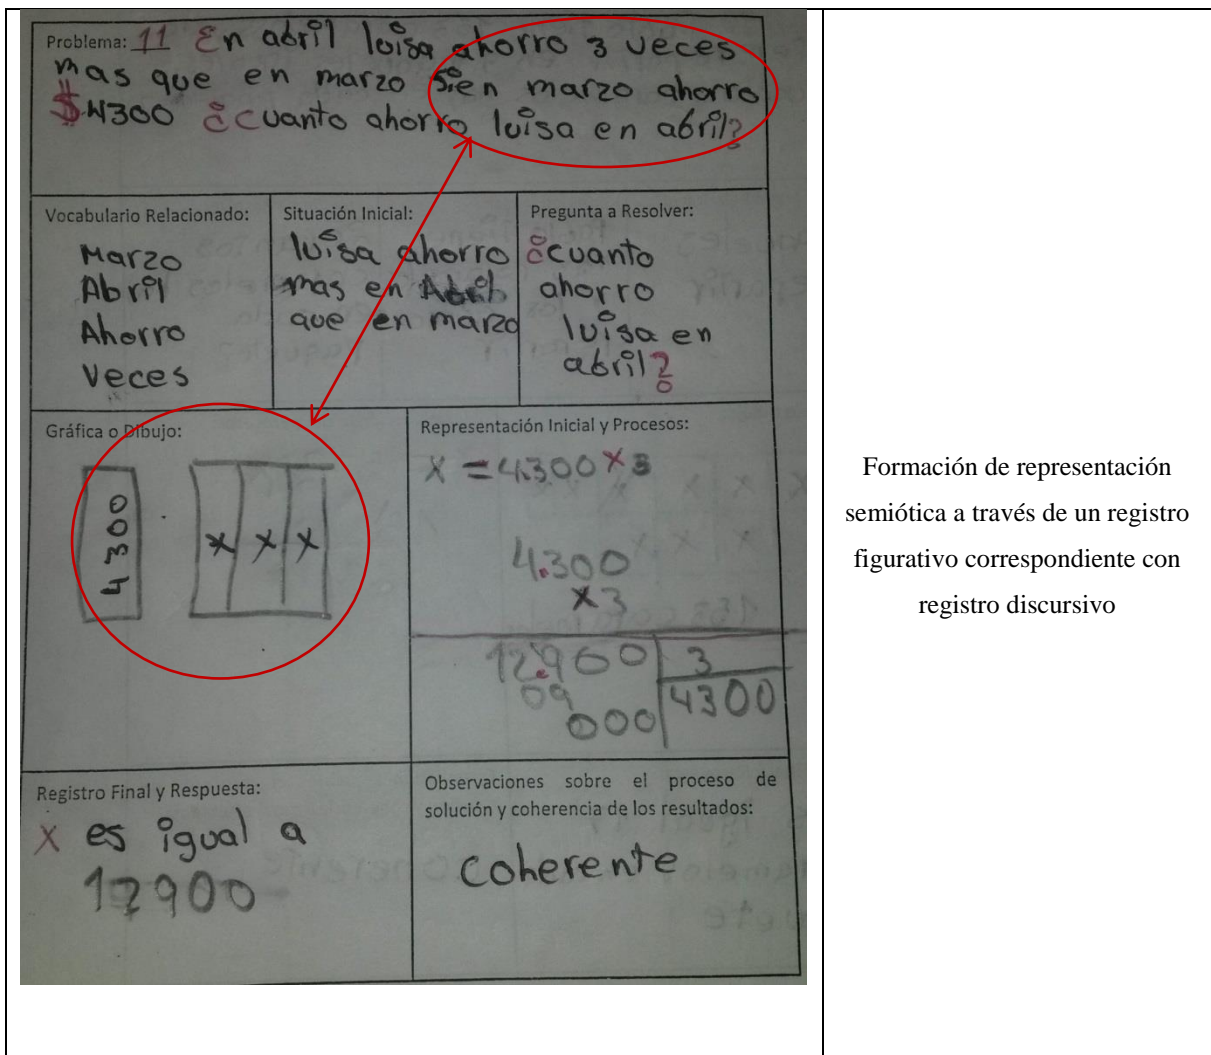 Problema: 11 En abril luisa ahorro 3 veces
mas que en marzo Si en marzo ahorro
$4300 ¿cuanto ahorro luisa en abril?
Vocabulario Relacionado:
Marzo
Abril
Ahorro
Veces
Situación Inicial:
luisa ahorro
mas en Abril
que en marzo
Pregunta a Resolver:
¿cuanto
ahorro
luisa en
abril?
Gráfica o Dibujo:
4300
x x x
Representación Inicial y Procesos:
X = 4.300 x 3
4.300
x3
12.900 3
09 4300
000
Registro Final y Respuesta:
X es igual a
12900
Observaciones sobre el proceso de
solución y coherencia de los resultados:
coherente
Formación de representación
semiótica a través de un registro
figurativo correspondiente con
registro discursivo